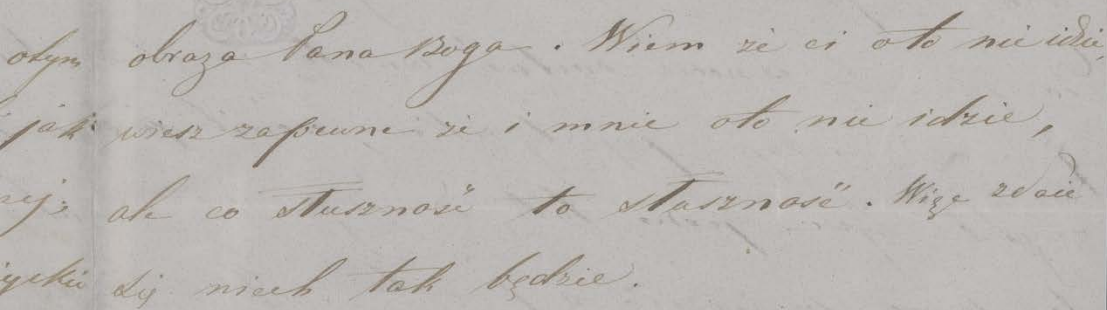 otym obraza Pana Boga. Wiem że ci oto nie idzie,
jak wiesz zapewne że i mnie oto nie idzie,
ale co słuszność to słuszność. Więc zdaie
się niech tak będzie.